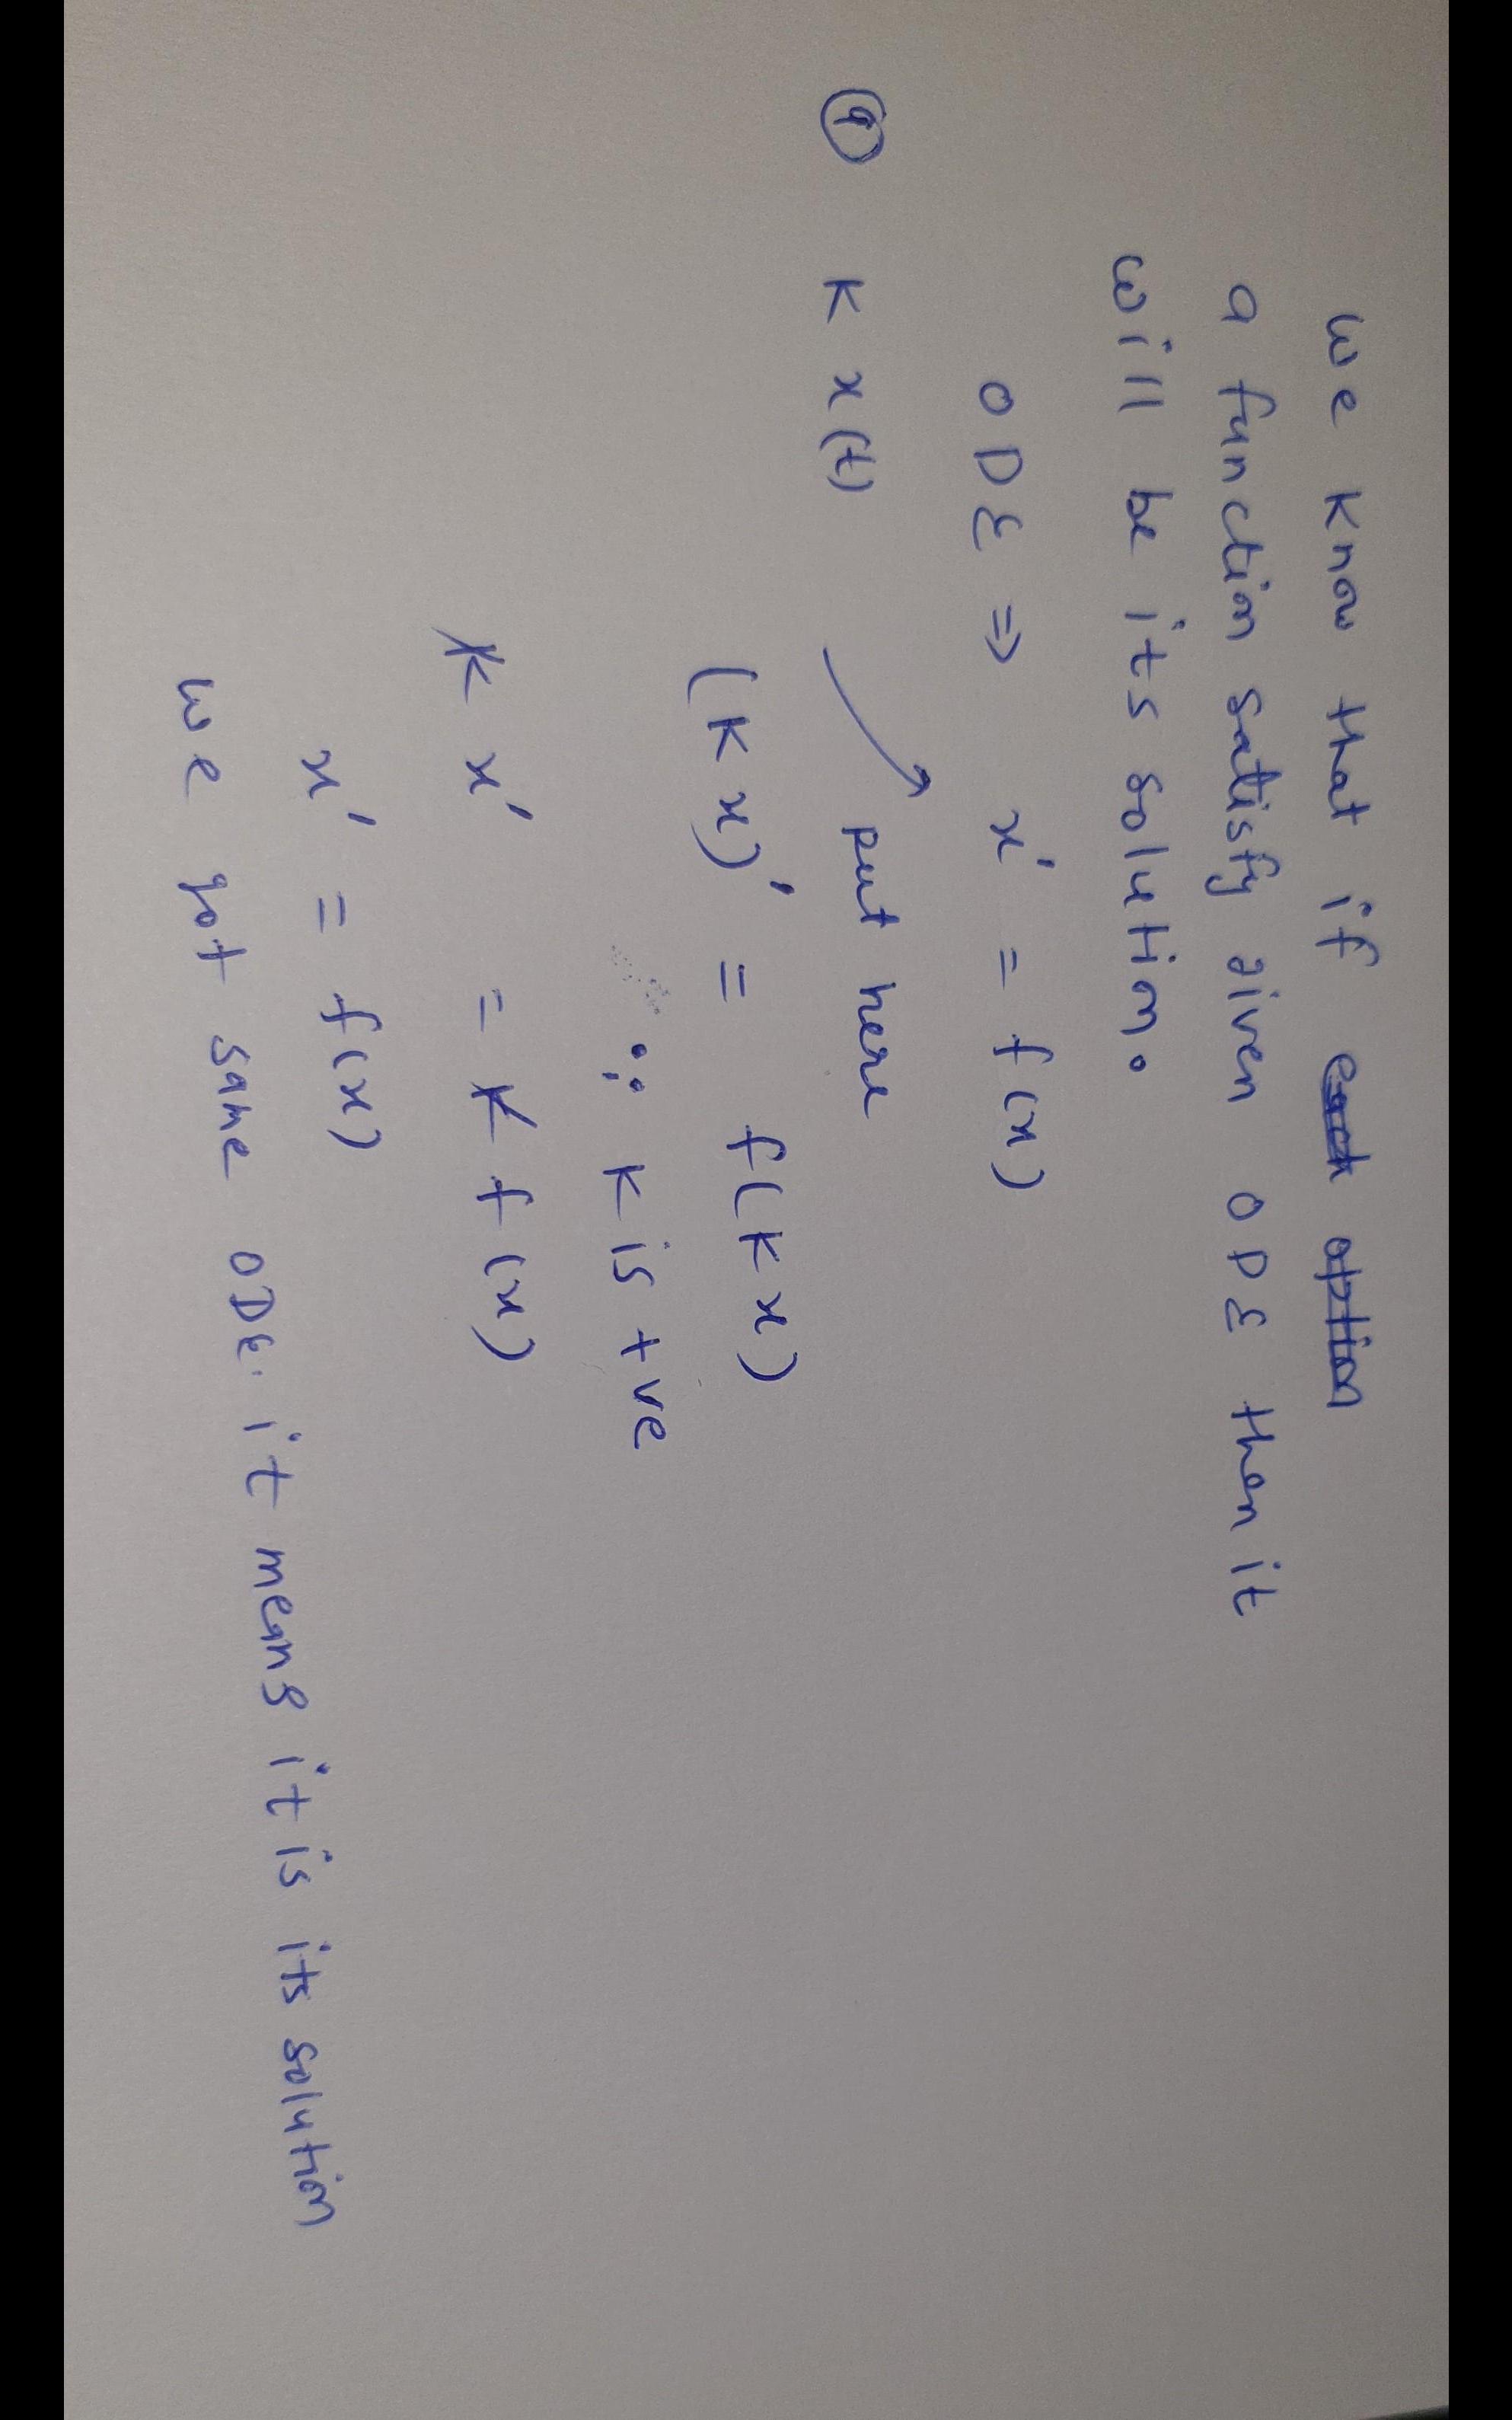 we know that if
a function satisfy given ODE then it
will be its solution.
ODE ⇒ x' = f(x)
put here
① K x(t)
(Kx)' = f(Kx)
∵ K is +ve
K x' = K f(x)
x' = f(x)
we got same ODE. it means it is its solution